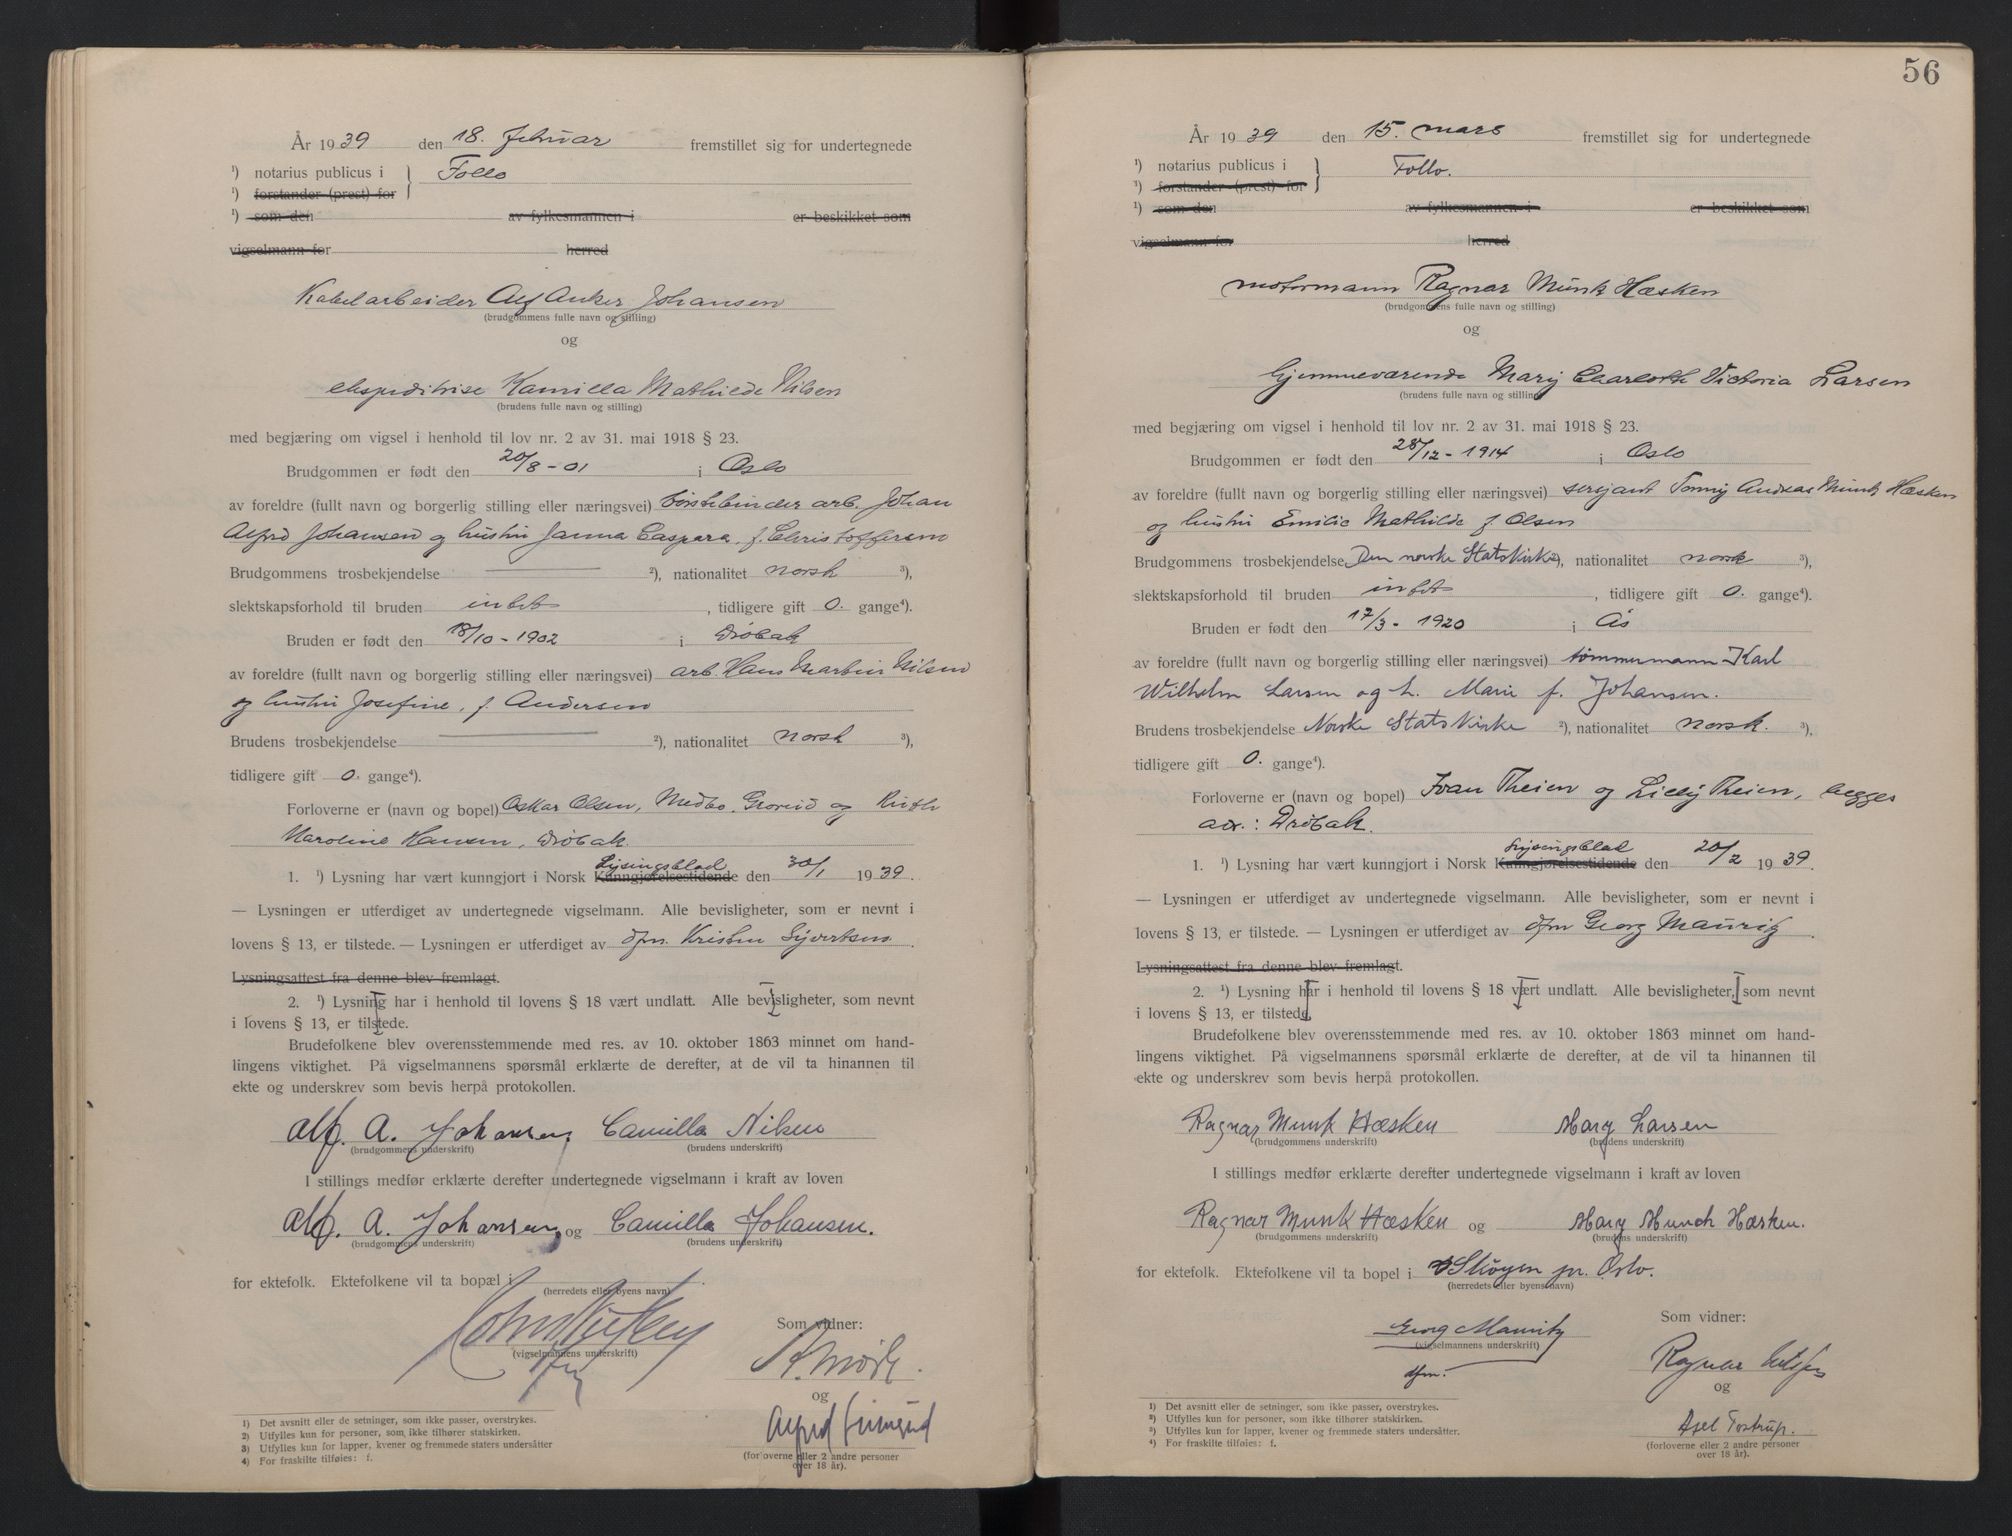 År 1939 den 18. februar fremstillet sig for undertegnede
¹) notarius publicus i } Follo
¹) forstander (prest) for
¹) som den av fylkesmannen i er beskikket som
vigselmann for herred
Kabelarbeider Alf Anker Johansen
(brudgommens fulle navn og stilling)
og
ekspeditrise Kamilla Mathilde Nilsen
(brudens fulle navn og stilling)
med begjæring om vigsel i henhold til lov nr. 2 av 31. mai 1918 § 23.
Brudgommen er født den 20/8-01 i Oslo
av foreldre (fullt navn og borgerlig stilling eller næringsvei) børstebinder arb. Johan
Alfred Johansen og hustru Janna Caspara, f. Christoffersen
Brudgommens trosbekjendelse ²), nationalitet norsk ³),
slektskapsforhold til bruden intet, tidligere gift 0. gange⁴).
Bruden er født den 18/10-1902 i Drøbak
av foreldre (fullt navn og borgerlig stilling eller næringsvei) arb. Hans Martin Nilsen
og hustru Josefine, f. Andersen
Brudens trosbekjendelse ²), nationalitet norsk ³),
tidligere gift 0. gange⁴).
Forloverne er (navn og bopel) Oskar Olsen, Medbo, og Ruth
Karoline Hansen, Drøbak.
Lysingsblad
1. ¹) Lysning har vært kunngjort i Norsk Kunngjørelsestidende den 30/1 1939.
— Lysningen er utferdiget av undertegnede vigselmann. Alle bevisligheter, som er nevnt i
lovens § 13, er tilstede. — Lysningen er utferdiget av dfm. Kristen Syvertsen.
Lysningsattest fra denne blev fremlagt.
2. ¹) Lysning har i henhold til lovens § 18 vært undlatt. Alle bevisligheter, som nevnt
i lovens § 13, er tilstede.
Brudefolkene blev overensstemmende med res. av 10. oktober 1863 minnet om hand-
lingens viktighet. På vigselmannens spørsmål erklærte de derefter, at de vil ta hinannen til
ekte og underskrev som bevis herpå protokollen.
Alf. A. Johansen Camilla Nilsen
(brudgommens underskrift) (brudens underskrift)
I stillings medfør erklærte derefter undertegnede vigselmann i kraft av loven
Alf. A. Johansen og Camilla Johansen.
(brudgommens underskrift) (brudens underskrift)
for ektefolk. Ektefolkene vil ta bopæl i
(herredets eller byens navn)
Som vidner:
(vigselmannens underskrift)
og
Alfred
(forloverne eller 2 andre personer
over 18 år).
1) Det avsnitt eller de setninger, som ikke passer, overstrykes.
2) Utfylles kun for personer, som ikke tilhører statskirken.
3) Utfylles kun for lapper, kvener og fremmede staters undersåtter
4) For fraskilte tilføies: f.
56
År 1939 den 15. mars fremstillet sig for undertegnede
¹) notarius publicus i } Follo.
¹) forstander (prest) for
¹) som den av fylkesmannen i er beskikket som
vigselmann for herred
motormann Ragnar Munk Hæsken
(brudgommens fulle navn og stilling)
og
hjemmeværende Mary Charlotte Victoria Larsen
(brudens fulle navn og stilling)
med begjæring om vigsel i henhold til lov nr. 2 av 31. mai 1918 § 23.
Brudgommen er født den 28/12-1914 i Oslo
av foreldre (fullt navn og borgerlig stilling eller næringsvei) sersjant Tonny Andreas Munk Hæsken
og hustru Emilie Mathilde f. Olsen
Brudgommens trosbekjendelse Den norske Statskirke ²), nationalitet norsk ³),
slektskapsforhold til bruden intet, tidligere gift 0. gange⁴).
Bruden er født den 17/3-1920 i Ås
av foreldre (fullt navn og borgerlig stilling eller næringsvei) tømmermann Karl
Wilhelm Larsen og h. Marie f. Johansen.
Brudens trosbekjendelse Norske Statskirke ²), nationalitet norsk. ³),
tidligere gift 0. gange⁴).
Forloverne er (navn og bopel) Ivan Theien og Lilly Theien, begges
adr.: Drøbak.
Lysingsblad
1. ¹) Lysning har vært kunngjort i Norsk Kunngjørelsestidende den 20/2 1939.
— Lysningen er utferdiget av undertegnede vigselmann. Alle bevisligheter, som er nevnt i
lovens § 13, er tilstede. — Lysningen er utferdiget av dfm Georg Mauritz.
Lysningsattest fra denne blev fremlagt.
2. ¹) Lysning har i henhold til lovens § 18 vært undlatt. Alle bevisligheter, som nevnt
i lovens § 13, er tilstede.
Brudefolkene blev overensstemmende med res. av 10. oktober 1863 minnet om hand-
lingens viktighet. På vigselmannens spørsmål erklærte de derefter, at de vil ta hinannen til
ekte og underskrev som bevis herpå protokollen.
Ragnar Munk Hæsken Mary Larsen
(brudgommens underskrift) (brudens underskrift)
I stillings medfør erklærte derefter undertegnede vigselmann i kraft av loven
Ragnar Munk Hæsken og Mary Munch Hæsken.
(brudgommens underskrift) (brudens underskrift)
for ektefolk. Ektefolkene vil ta bopel i Skøyen pr. Oslo.
(herredets eller byens navn)
Georg Mauritz
(vigselmannens underskrift)
dfm.
Som vidner:
Ragnar
og
Axel Tostrup.
(forloverne eller 2 andre personer
over 18 år).
¹) Det avsnitt eller de setninger, som ikke passer, overstrykes.
²) Utfylles kun for personer, som ikke tilhører statskirken.
³) Utfylles kun for lapper, kvener og fremmede staters undersåtter.
⁴) For fraskilte tilføies: f.